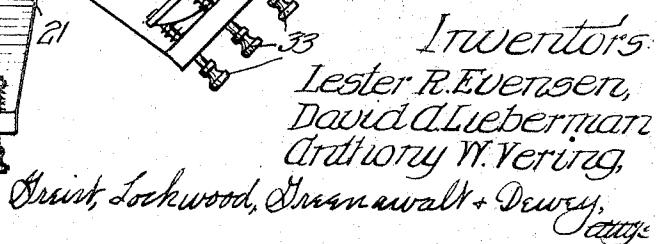 21
33
Inventors
Lester R. Evensen,
David A. Lieberman
Anthony W. Vering,
Greist, Lockwood, Greenawalt + Dewey,
attys